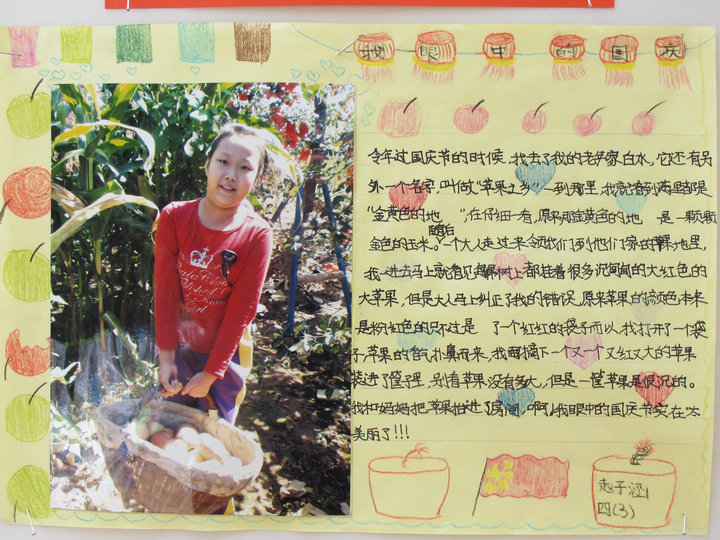 我眼中的国庆
今年过国庆节的时候,我去了我的老家白水,它还有另
外一个名字,叫做“苹果之乡”一到那里,我就看到两里都是
“金黄色的地”,在仔细一看,原来那金黄色的地 是一颗颗
金色的玉米。随后一个大人走过来领我们到他们家的苹果地里,
我一进去马上就看见苹果树上都挂着很多沉甸甸的大红色的
大苹果,但是大人马上纠正了我的错误,原来苹果的颜色本来
是粉红色的只不过是 了个红红的袋子而以,我打开了一个袋
子,苹果的香气扑鼻而来,我再摘下一个又一个又红又大的苹果
装进了筐子里,别看苹果没有多大,但是一筐苹果是很沉的。
我和妈妈把苹果抬进了房间,啊!我眼中的国庆节实在太
美丽了!!!
赵子涵
四(3)